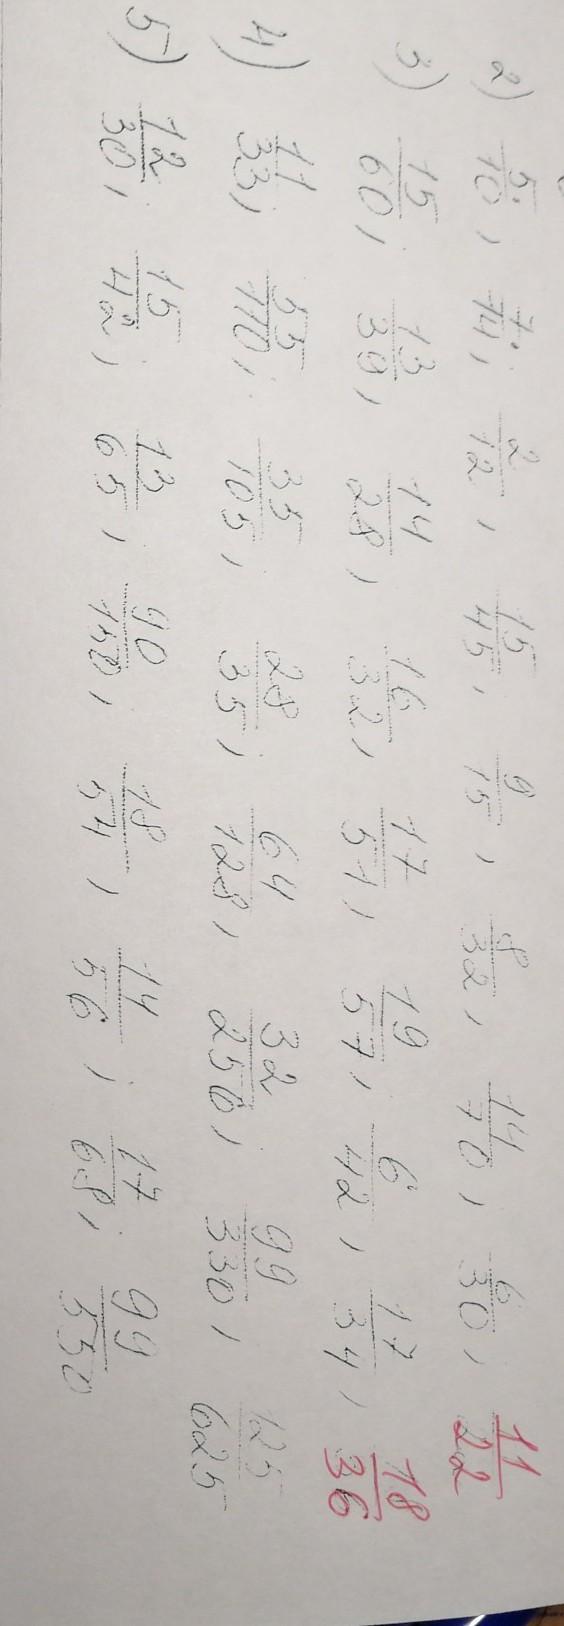 2) 5/10, 7/14, 2/12, 15/45, 9/15, 8/32, 14/70, 6/30, 11/22
3) 15/60, 13/39, 14/28, 16/32, 17/51, 19/57, 6/42, 17/34, 18/36
4) 11/33, 55/110, 35/105, 28/35, 64/128, 32/256, 99/330, 125/625
5) 12/30, 15/42, 13/65, 90/150, 18/54, 14/56, 17/68, 99/550